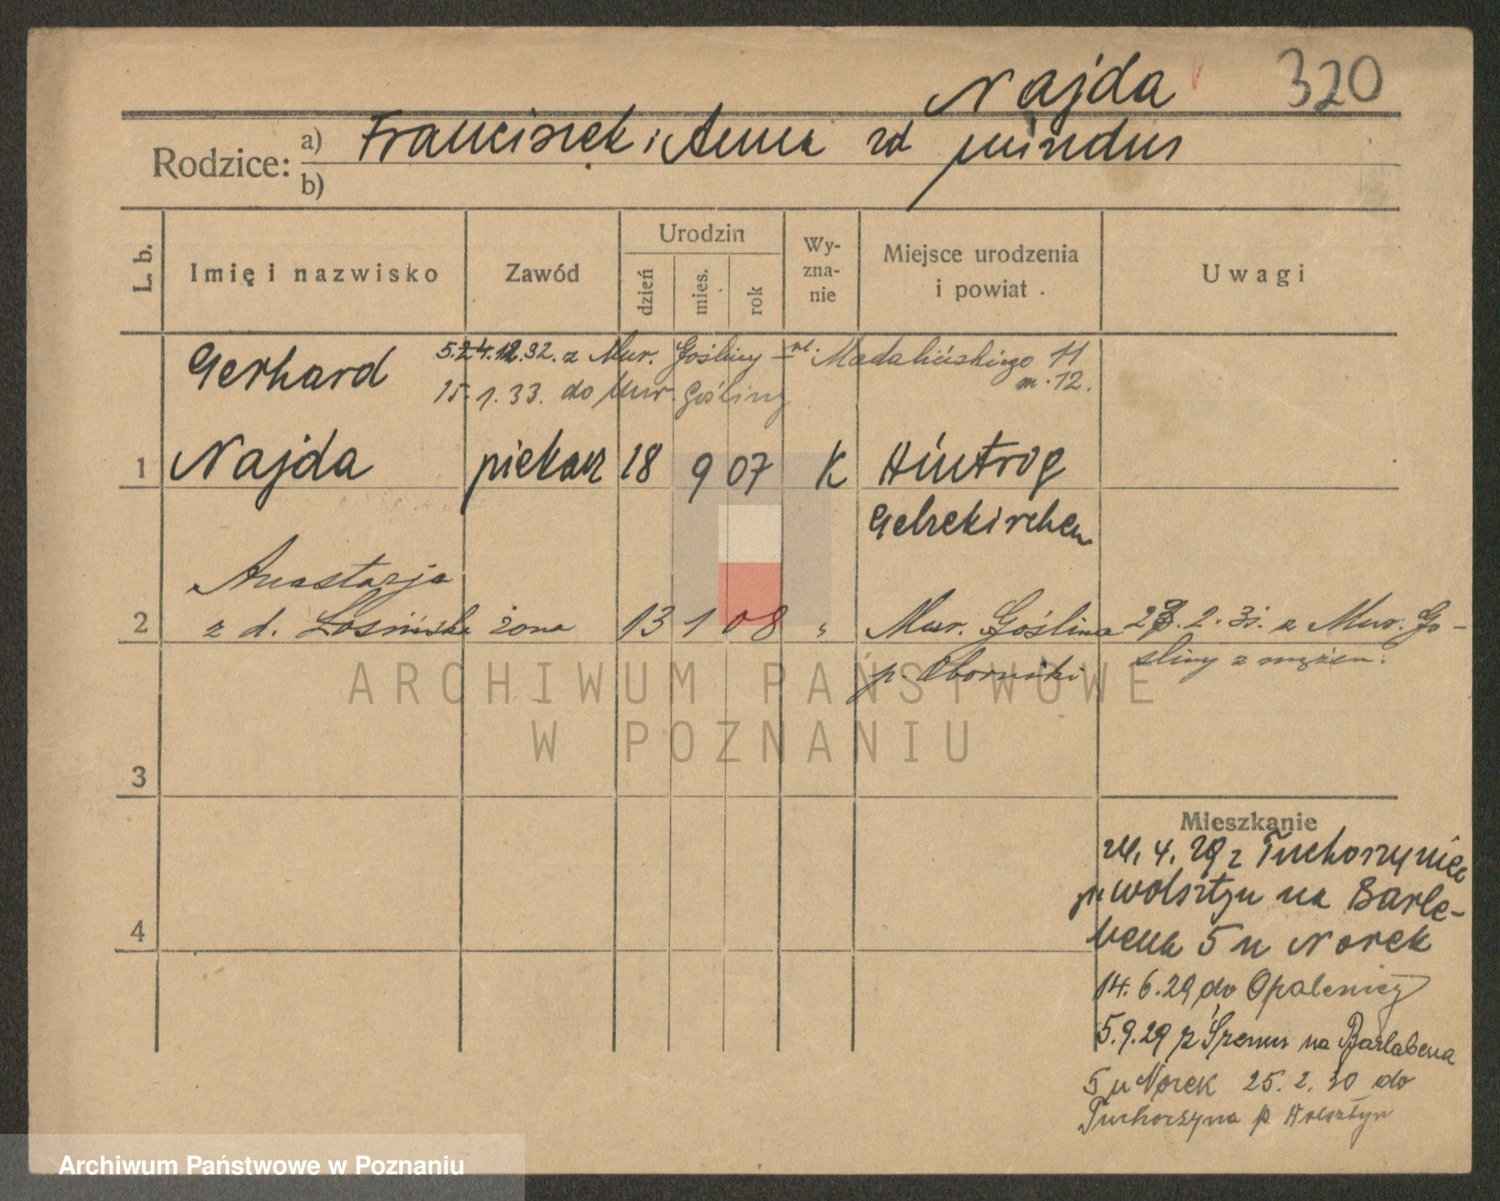 Najda 320
Rodzice: a) Franciszek i Anna zd
b)
L. b. Imię i nazwisko Zawód Urodzin dzień mies. rok Wyznanie Miejsce urodzenia i powiat Uwagi
Gerhard 12.32. z Mur. Gośliny
15.1.33. do Mur. Gośliny m. 12.
1 Najda piekarz 18 9 07 K
Anastazja
2 z d. żona 13 1 08 " Mur. Goślina 2. z Mur. Go-
p. Oborniki śliny z mężem.
3
Mieszkanie
4. 29 z
Wolsztyn na Barle-
4 bena 5 u Norek
14.6.29 do Opalenicy
5.9.29 z Śremu na Barlabena
5 u Norek 25.2.30 do
Tuchorzyna p. Wolsztyn
ARCHIWUM PAŃSTWOWE
W POZNANIU
Archiwum Państwowe w Poznaniu